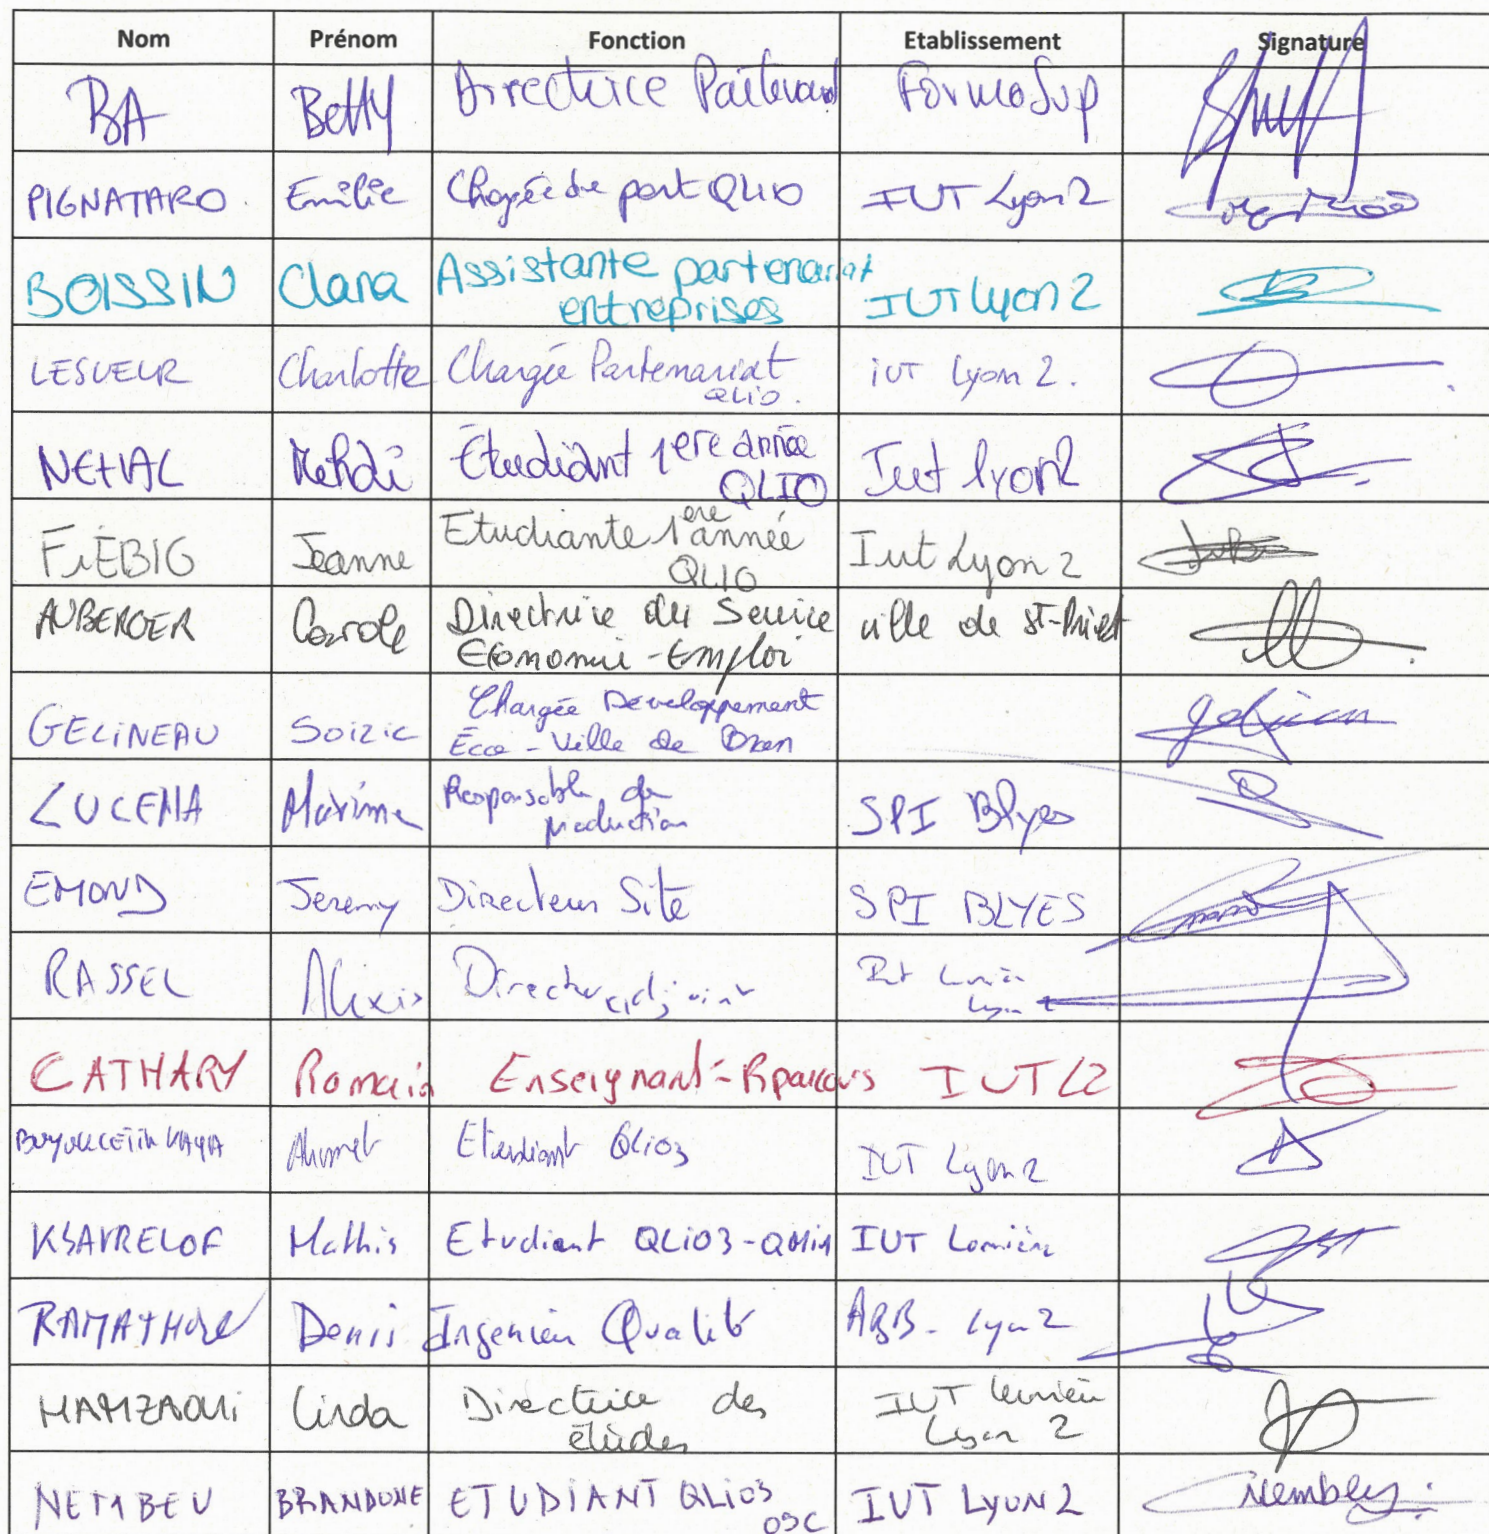 Nom Prénom Fonction Etablissement Signature
BA Betty Directrice Partenariat FormaSup
PIGNATARO Emilie Chargée de part QLIO IUT Lyon 2
BOISSIN Clara Assistante partenariat
entreprises IUT Lyon 2
LESUEUR Charlotte Chargée Partenariat
QLIO. IUT Lyon 2.
NEHAL Mehdi Étudiant 1ere année
QLIO Iut Lyon2
FIEBIG Jeanne Etudiante 1ere année
QLIO Iut Lyon 2
AUBERGER Carole Directrice du Service
Economie-Emploi ville de St-Priest
GELINEAU Soizic Chargée Développement
Éco - Ville de Bron
LUCENA Maxime Responsable de
production SPI Blyes
EMOND Jeremy Directeur Site SPI BLYES
RASSEL Alexis Directeur adjoint Iut Lumière
Lyon 2
CATHARY Romain Enseignant-Rparcours IUT L2
Ahmet Etudiant QLIO3 IUT Lyon 2
KSAVRELOF Mathis Etudiant QLIO3- IUT Lumière
Denis Ingenieur Qualité Lyon 2
HAMZAOUI Linda Directrice des
études IUT Lumière
Lyon 2
NEMBEU BRANDONE ETUDIANT QLIO3
OSC IUT LYON 2